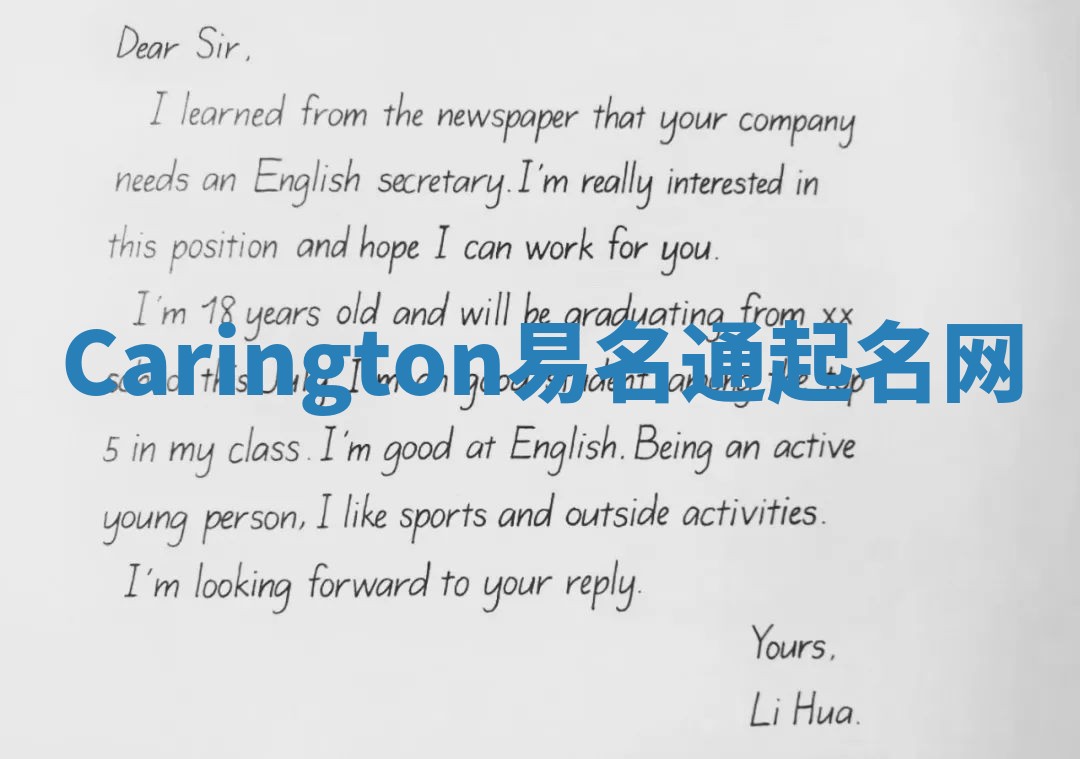 Dear Sir,
I learned from the newspaper that your company
needs an English secretary. I'm really interested in
this position and hope I can work for you.
I'm 18 years old and will be graduating from xx
Carington易名通起名网
school this July. I'm a good student among the top
5 in my class. I'm good at English. Being an active
young person, I like sports and outside activities.
I'm looking forward to your reply.
Yours,
Li Hua.